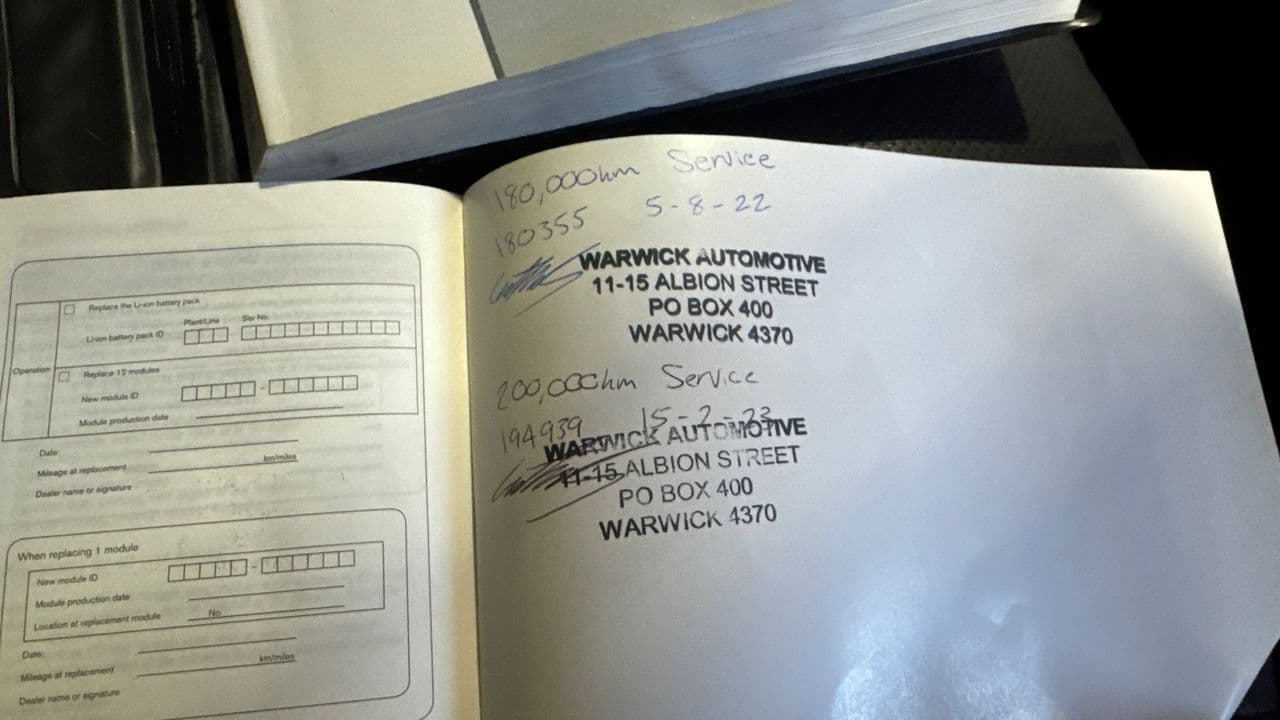 Replace the Li-ion battery pack
Plant/Line Ser No.
Li-ion battery pack ID
Operation
Replace 12 modules
New module ID -
Module production date
Date:
Mileage at replacement km/miles
Dealer name or signature
When replacing 1 module
New module ID -
Module production date
Location at replacement module No.
Date:
Mileage at replacement km/miles
Dealer name or signature
180,000km Service
180355 5-8-22
WARWICK AUTOMOTIVE
11-15 ALBION STREET
PO BOX 400
WARWICK 4370
200,000km Service
194939 15-2-23
WARWICK AUTOMOTIVE
11-15 ALBION STREET
PO BOX 400
WARWICK 4370